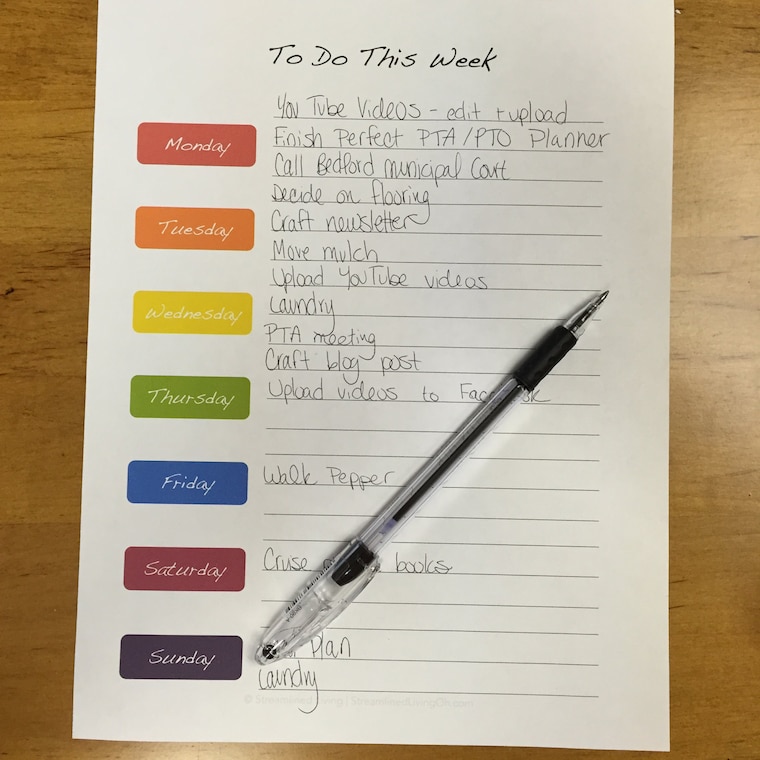 To Do This Week
You Tube Videos - edit + upload
Monday
Finish Perfect PTA/PTO Planner
Call Bedford Municipal Court
Decide on flooring
Tuesday
Craft newsletter
Move mulch
Upload YouTube videos
Wednesday
Laundry
PTA meeting
Craft blog post
Thursday
Upload videos to
Friday
Walk Pepper
Saturday
Cruise books
Sunday
Plan
Laundry
© Streamlined Living | StreamlinedLivingOn.com